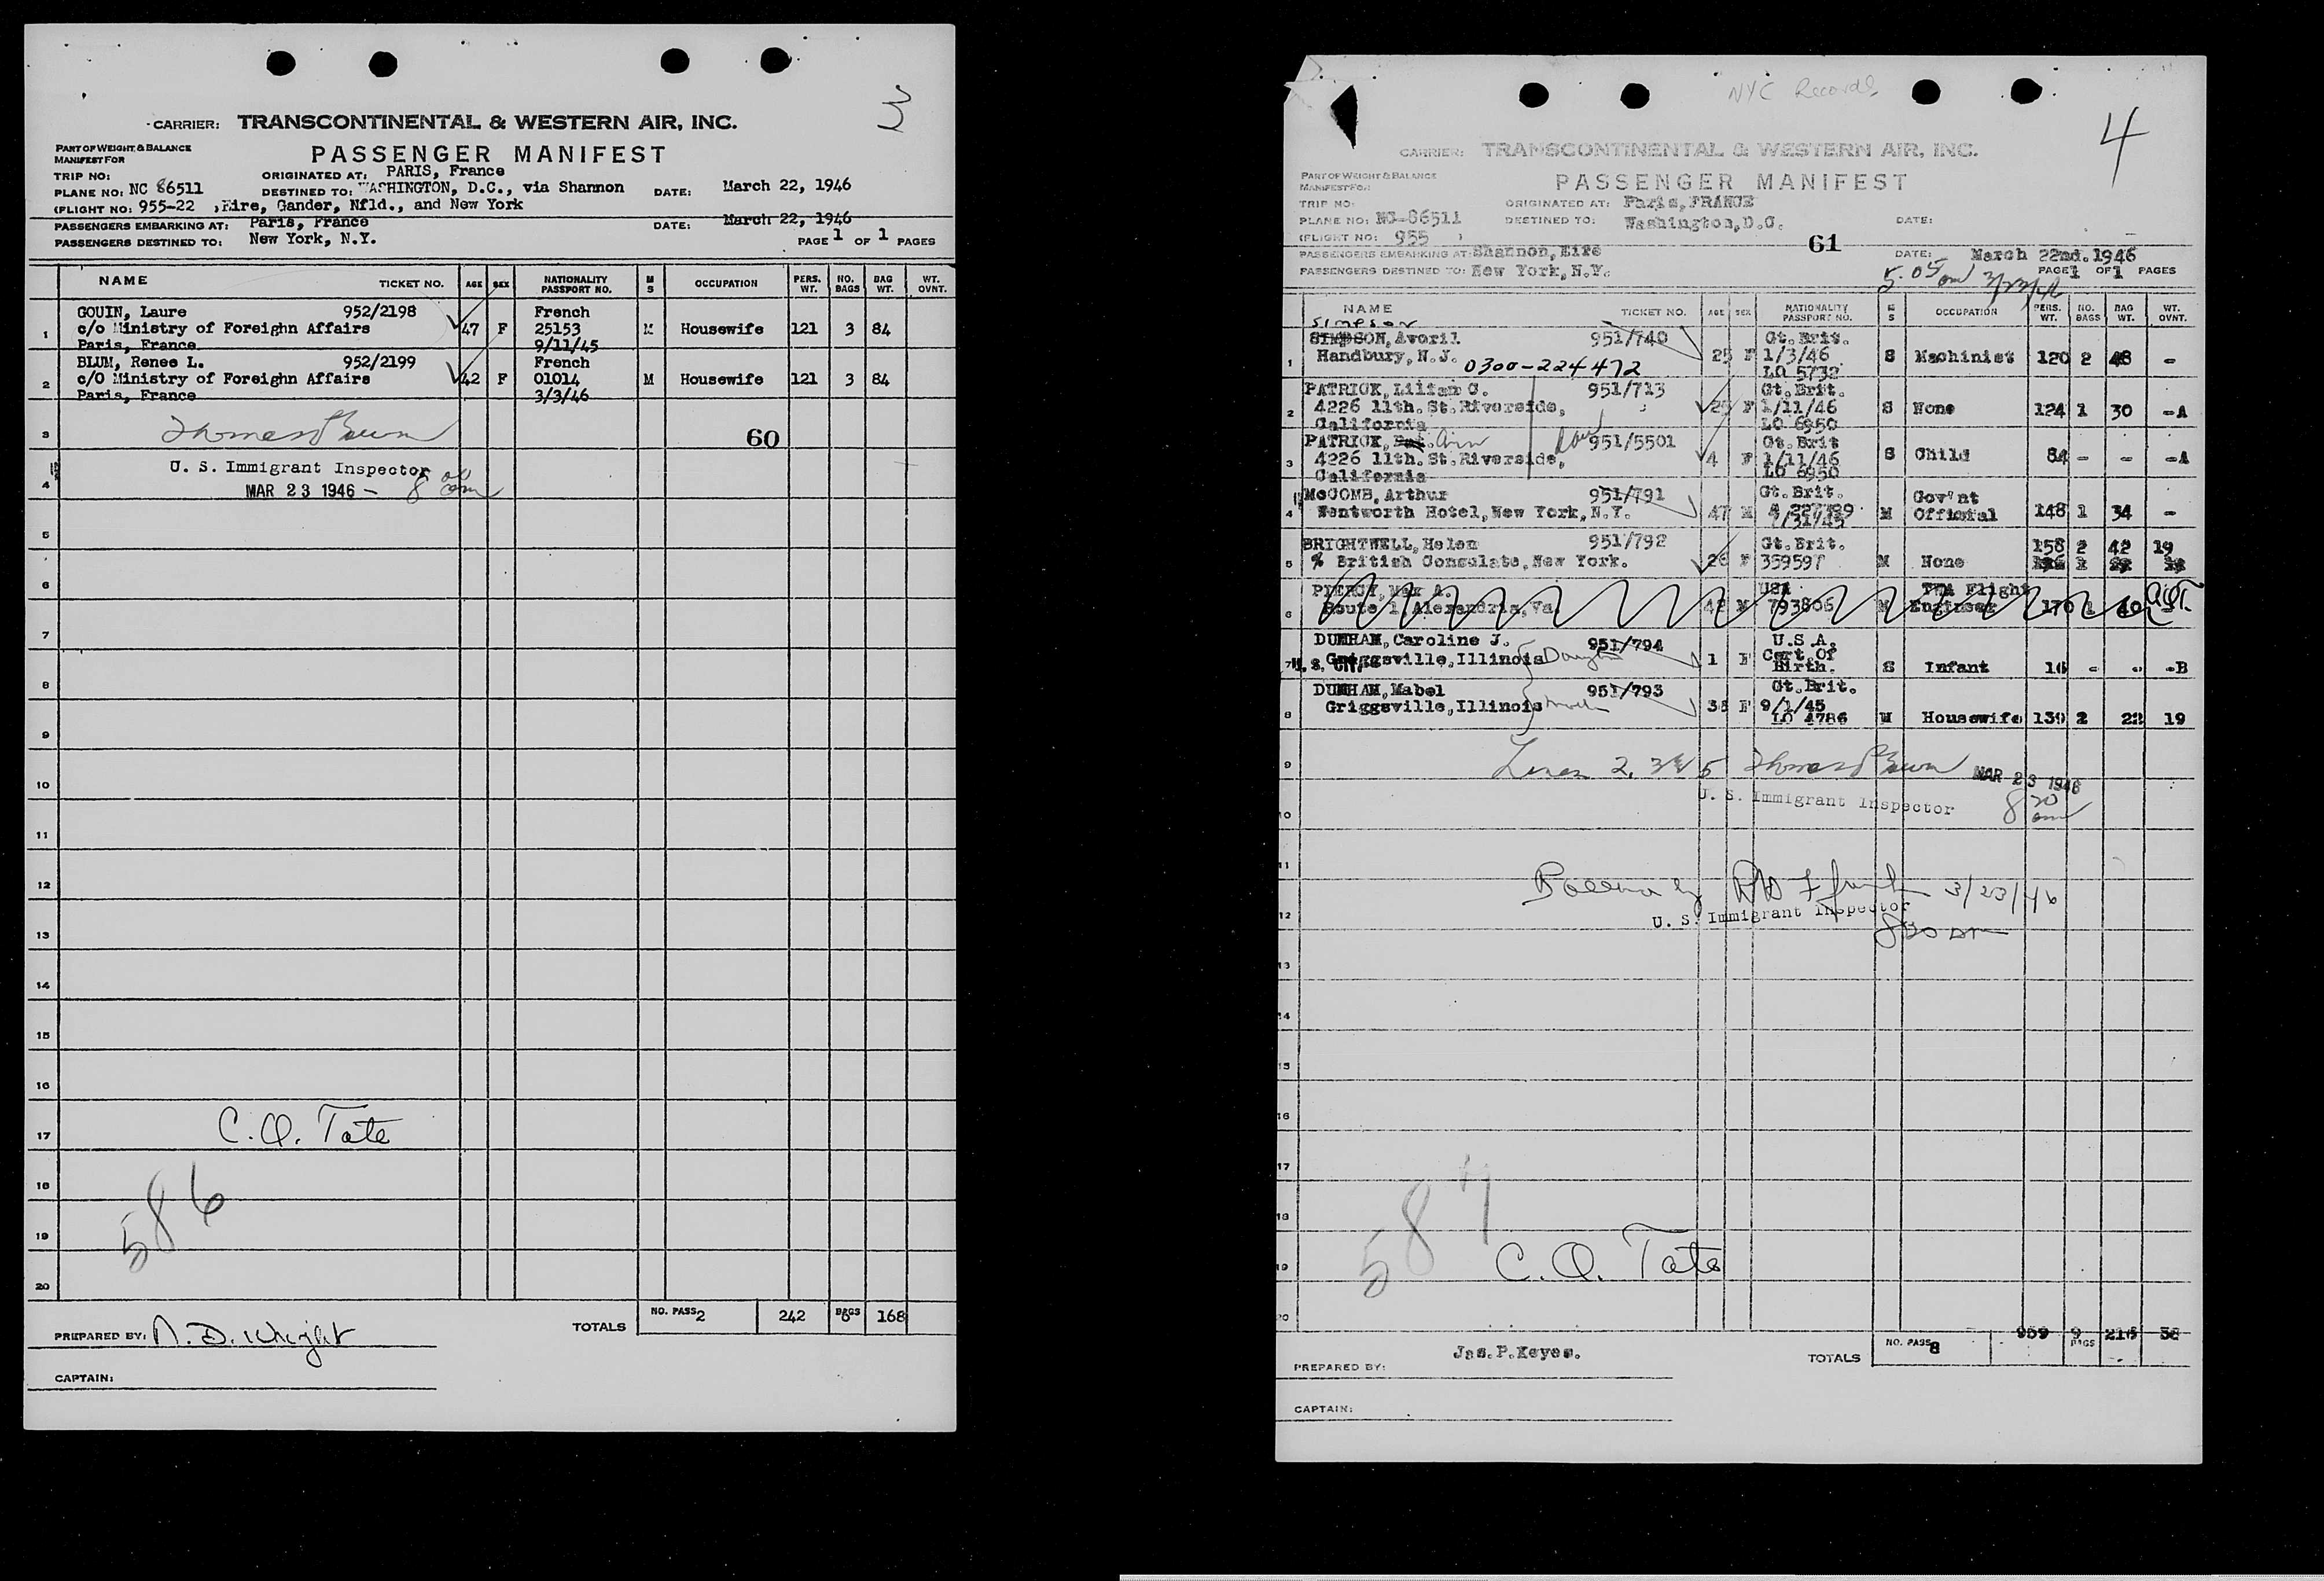 3
CARRIER: TRANSCONTINENTAL & WESTERN AIR, INC.
PART OF WEIGHT & BALANCE
MANIFEST FOR
PASSENGER MANIFEST
TRIP NO:
ORIGINATED AT: PARIS, France
PLANE NO: NC 86511
DESTINED TO: WASHINGTON, D.C., via Shannon
DATE: March 22, 1946
(FLIGHT NO: 955-22 ,Eire, Gander, Nfld., and New York
PASSENGERS EMBARKING AT: Paris, France
DATE: March 22, 1946
PASSENGERS DESTINED TO: New York, N.Y.
PAGE 1 OF 1 PAGES
NAME TICKET NO. AGE SEX NATIONALITY PASSPORT NO. M S OCCUPATION PERS. WT. NO. BAGS BAG WT. WT. OVNT.
GOUIN, Laure 952/2198 French
1 c/o Ministry of Foreighn Affairs 47 F 25153 M Housewife 121 3 84
Paris, France 9/11/45
BLUM, Renee L. 952/2199 French
2 c/O Ministry of Foreighn Affairs 42 F 01014 M Housewife 121 3 84
Paris, France 3/3/46
3 Thomas Brown 60
U. S. Immigrant Inspector
4 MAR 23 1946 - 8 00 am
5
6
7
8
9
10
11
12
13
14
15
16
17 C. O. Tate
18
586
19
20
TOTALS NO. PASS 2 242 BAGS 168
PREPARED BY: N. D. Wright
CAPTAIN:
NYC Records
4
CARRIER: TRANSCONTINENTAL & WESTERN AIR, INC.
PART OF WEIGHT & BALANCE
MANIFEST FOR:
PASSENGER MANIFEST
TRIP NO:
ORIGINATED AT: Paris, FRANCE
PLANE NO: NC-86511
DESTINED TO: Washington, D.C.
DATE:
(FLIGHT NO: 955 )
61
PASSENGERS EMBARKING AT: Shannon, Eire
DATE: March 22nd. 1946
PASSENGERS DESTINED TO: New York, N.Y.
5.05 am 3/23/46
PAGE 1 OF 1 PAGES
NAME TICKET NO. AGE SEX NATIONALITY PASSPORT NO. M S OCCUPATION PERS. WT. NO. BAGS BAG WT. WT. OVNT.
Simpson
SIMPSON, Avoril 951/740 Gt. Brit.
1 Handbury, N.J. 0300-224472 25 F 1/3/46 S Machinist 120 2 48 -
LO 5732
PATRICK, Lilian C. 951/713 Gt. Brit.
2 4226 11th. St. Riverside, F 1/11/46 S None 124 1 30 -A
California LO 6950
PATRICK, Ann 951/5501 Gt. Brit
3 4226 11th. St. Riverside, 4 F 1/11/46 S Child 84 - - -A
California LO 6950
McCOMB, Arthur 951/791 Gt. Brit. Gov'nt
4 Wentworth Hotel, New York, N.Y. 47 M M Official 148 1 34 -
BRIGHTWELL, Helen 951/792 Gt. Brit. 158 2 42 19
5 % British Consulate, New York. 26 F 359597 M None
PIERCY, Max A. USA TWA Flight
6 Route 1 Alexandria, Va. 42 M 793806 M Engineer 170 1 40 -
DUNHAM, Caroline J. 951/794 U.S.A.
7 U.S. CIT. Griggsville, Illinois Daughter 1 F Cert. Of Birth. S Infant 16 - - -B
DUNHAM, Mabel 951/793 Gt. Brit.
8 Griggsville, Illinois mother F 9/1/45 M Housewife 139 2 22 19
LO 4786
9 Lines 2, 3 & 5 Thomas Brown MAR 23 1946
U. S. Immigrant Inspector
10 8 20 am
11
3/23/46
12 U. S. Immigrant Inspector
13
14
15
16
17
587
18
19 C. O. Tate
20
TOTALS NO. PASS 8 959 9 BAGS 216 38
PREPARED BY: Jas. P. Keyes.
CAPTAIN: